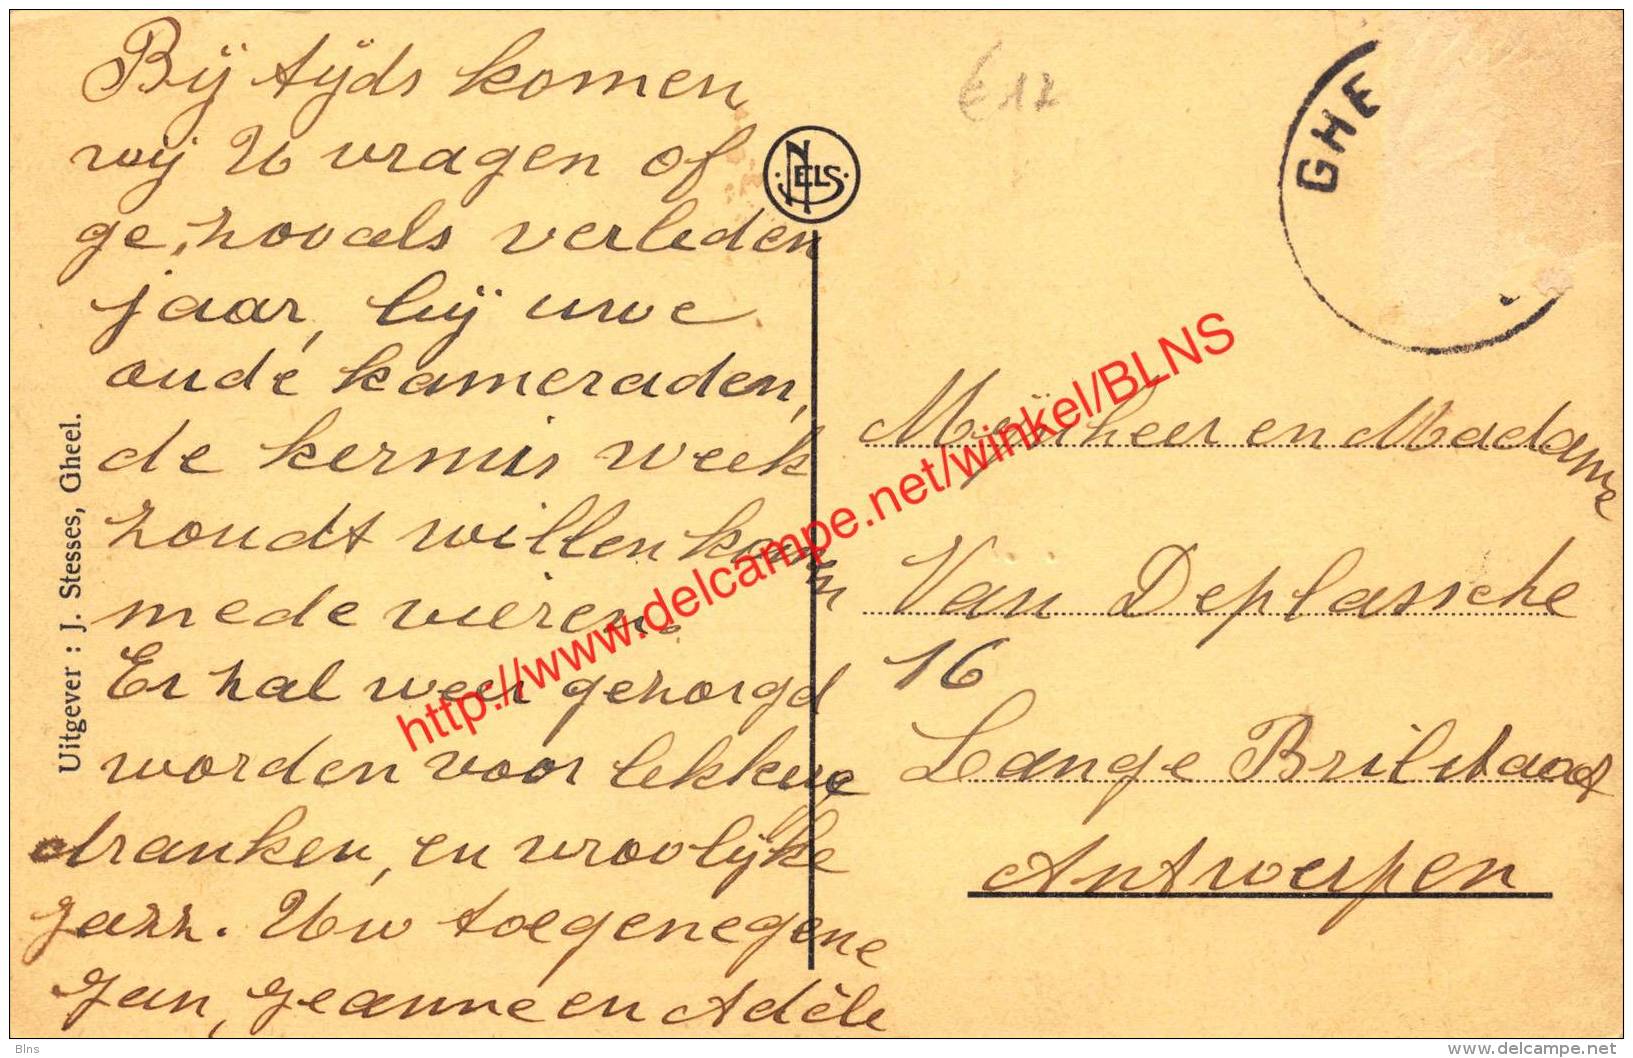 Bij tijds komen
wij U vragen of
ge, zooals verleden
jaar, bij uwe
oude kameraden,
de kermis week
zoudt willen kom
men
mede vieren.
Er zal weer gezorgd
worden voor lekkere
dranken, en vroolijke
jazz. Uw toegenegene
Jan, Jeanne en Adèle
Uitgever : J. Stesses, Gheel.
NELS
€ 17
GHE
Mijnheer en Madame
Van Deplassche
16
Lange Brilstraat
Antwerpen
http://www.delcampe.net/winkel/BLNS
Blns
www.delcampe.net